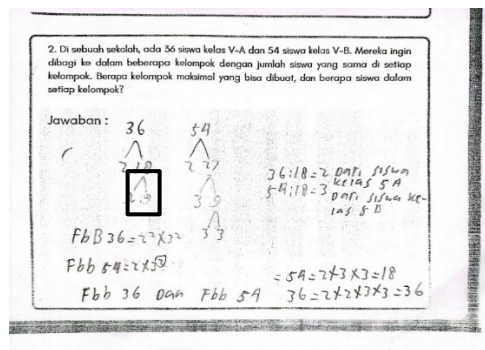 2. Di sebuah sekolah, ada 36 siswa kelas V-A dan 54 siswa kelas V-B. Mereka ingin
dibagi ke dalam beberapa kelompok dengan jumlah siswa yang sama di setiap
kelompok. Berapa kelompok maksimal yang bisa dibuat, dan berapa siswa dalam
setiap kelompok?
Jawaban :
36 54
2 18 2 27
2 9 3 9
3 3
36:18=2 Dari siswa
kelas 5 A
54:18=3 Dari siswa ke-
las 5 B
FbB 36=2²X3²
Fbb 54=2X3
Fbb 36 Dan Fbb 54
=54=2X3X3=18
36=2X2X3X3=36